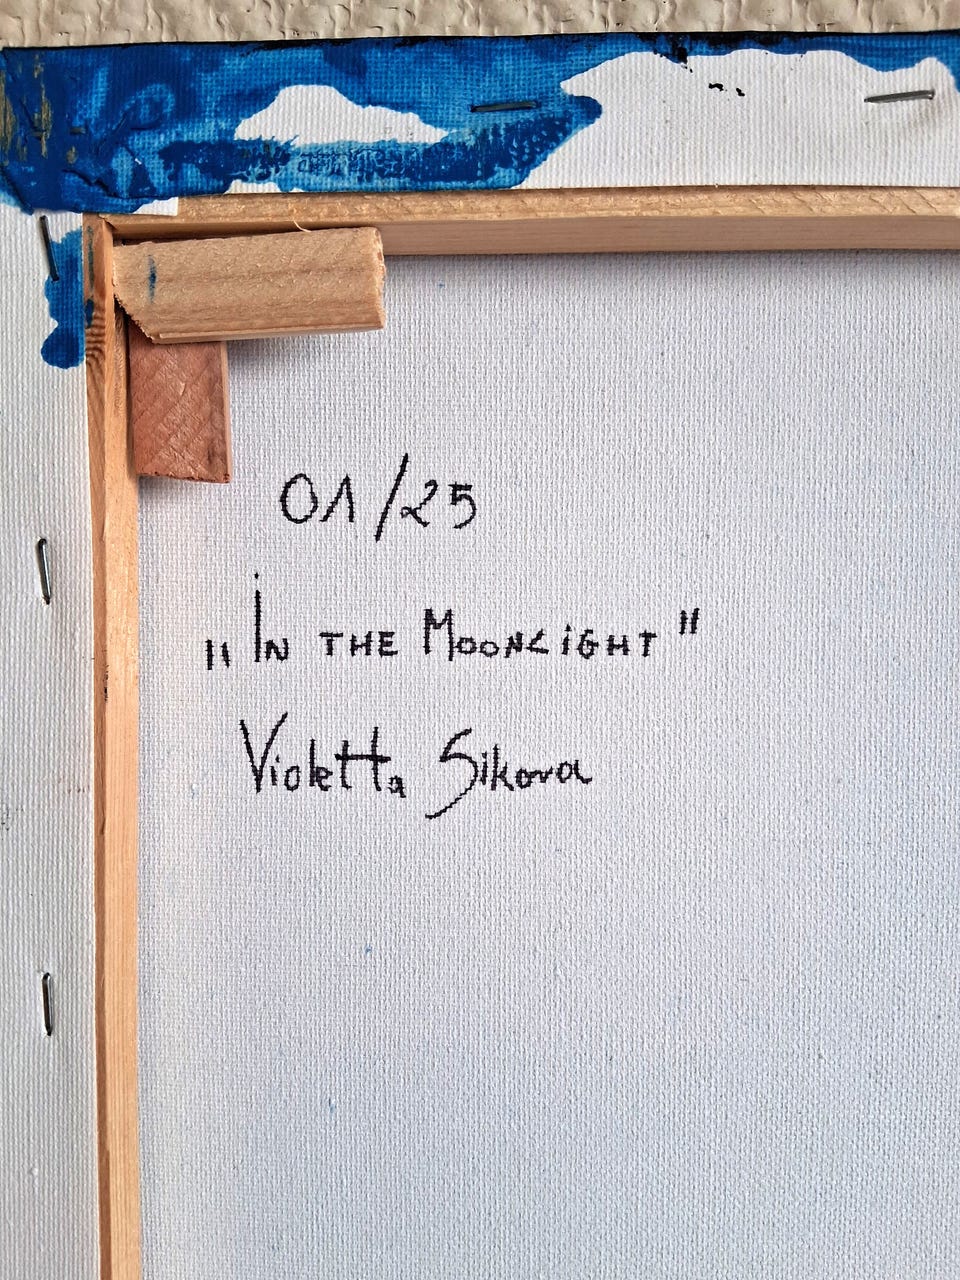 01/25
„In the Moonlight"
Violetta Sikora